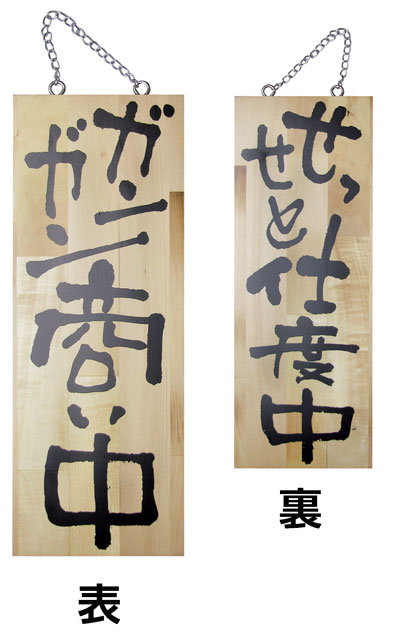 ガンガン商い中
せっせと仕度中
表
裏